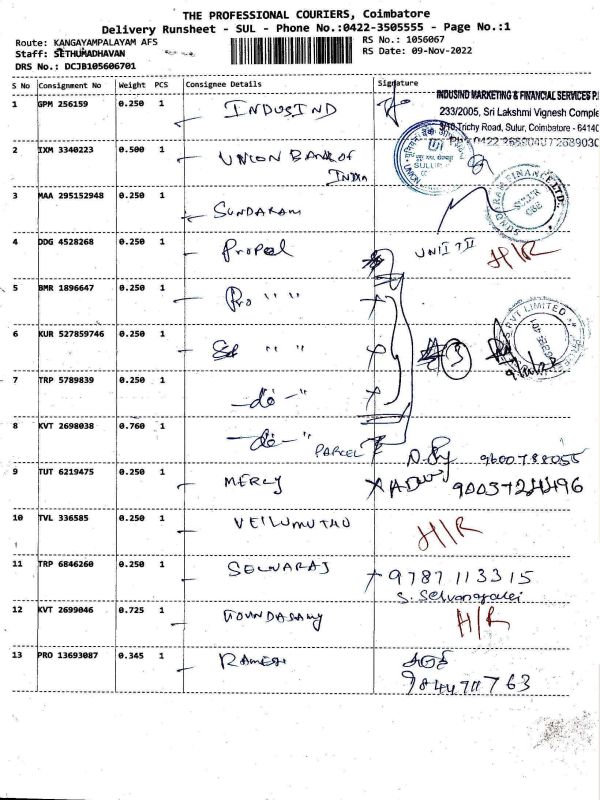 THE PROFESSIONAL COURIERS, Coimbatore
Delivery Runsheet - SUL - Phone No.:0422-3505555 - Page No.:1
Route: KANGAYAMPALAYAM AFS
RS No.: 1056067
Staff: SETHUMADHAVAN
RS Date: 09-Nov-2022
DRS No.: DCJB105606701
S No Consignment No Weight PCS Consignee Details Signature
INDUSIND MARKETING & FINANCIAL SERVICES P
1 GPM 256159 0.250 1 INDUSIND
233/2005, Sri Lakshmi Vignesh Comple
Trichy Road, Sulur, Coimbatore - 64140
2 IXM 3340223 0.500 1 UNION BANK OF
INDIA
3 MAA 295152948 0.250 1 SUNDARAM
SUNDARAM FINANCE LTD.
4 DDG 4528268 0.250 1 PROPEL
UNIT II
H/R
5 BMR 1896647 0.250 1 Pro " "
PVT LIMITED
6 KUR 527859746 0.250 1 " "
7 TRP 5789839 0.250 1 -do- "
8 KVT 2698038 0.760 1 -do- " PARCEL
9600788055
9 TUT 6219475 0.250 1 MERCY
9003724496
10 TVL 336585 0.250 1 VEILUMUTHU H/R
11 TRP 6846260 0.250 1 SELVARAJ 9787113315
S. Selvanayaki
12 KVT 2699046 0.725 1 GOUNDASAMY H/R
13 PRO 13693087 0.345 1 RAMESH